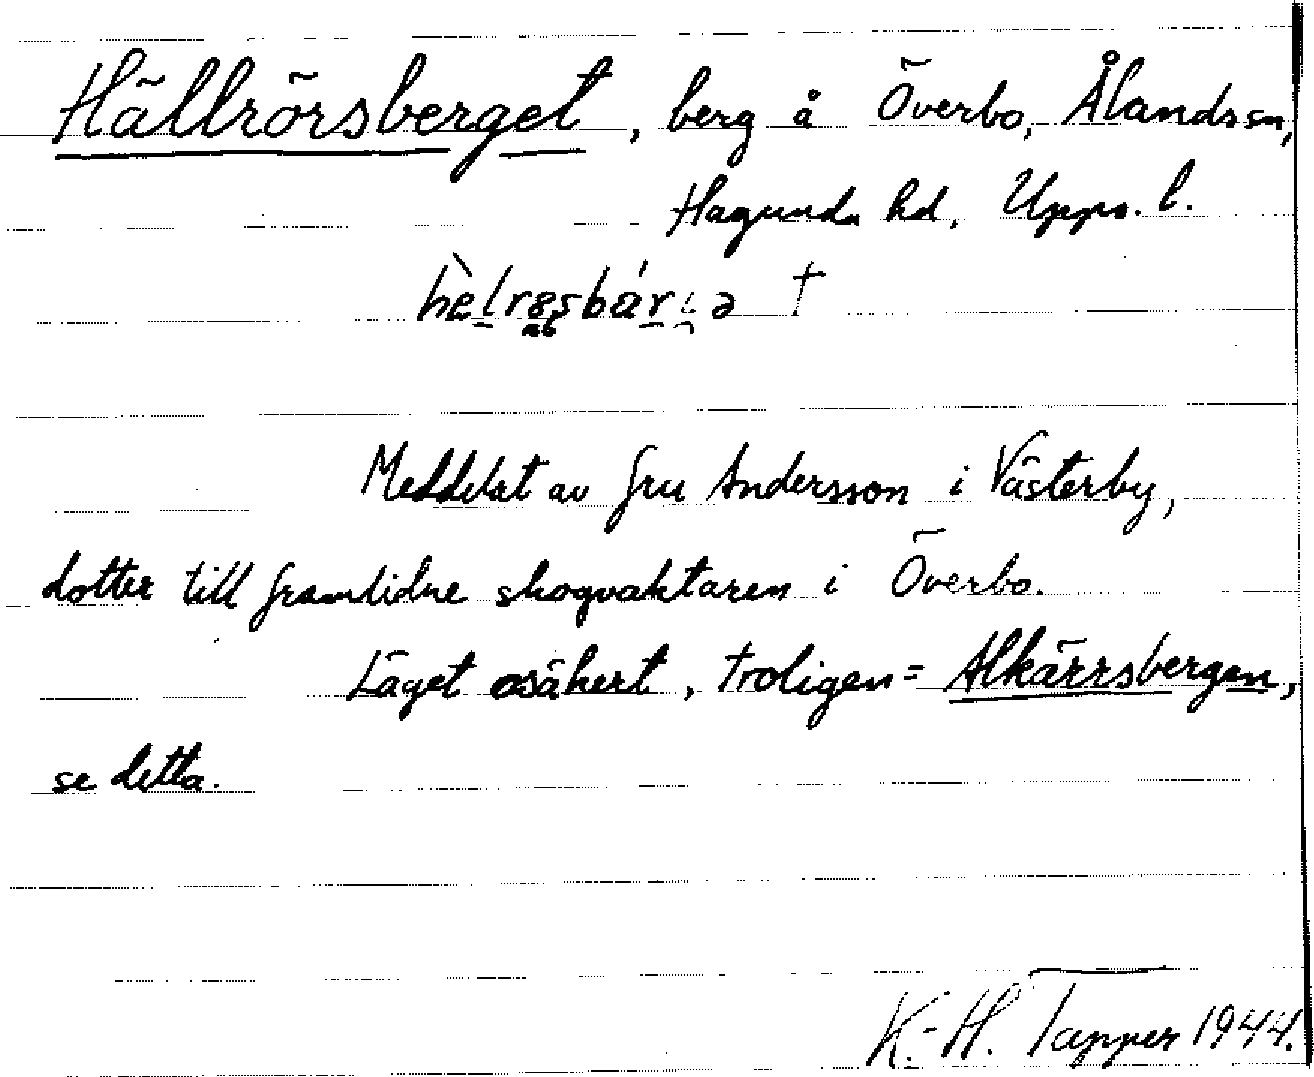 Hällrörsberget, berg å Överbo, Ålands sn,
Hagunda hd, Upps. l.
Meddelat av fru Andersson i Västerby,
dotter till framlidne skogvaktaren i Överbo.
Läget osäkert, troligen = Alkärrsbergen,
se detta.
K.-H. Tapper 1944.